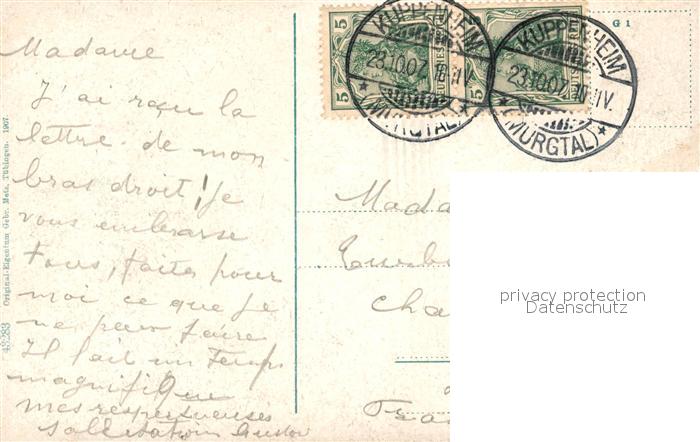 Madame
J'ai reçu la
lettre de mon
bras droit! Je
vous embrasse
Tous, faites pour
moi ce que je
ne peux faire
Il fait un Temps
magnifique
mes respectueuses
Salutations Gustav
5 5
DEUTSCHES
5 5
KUPPENHEIM
23.10.07. IV.
* (MURGTAL) *
KUPPENHEIM
23.10.07. IV.
* (MURGTAL) *
G 1
Mada
Cha
Fra
privacy protection
Datenschutz
42283 Original-Eigentum Gebr. Metz, Tübingen. 1907.